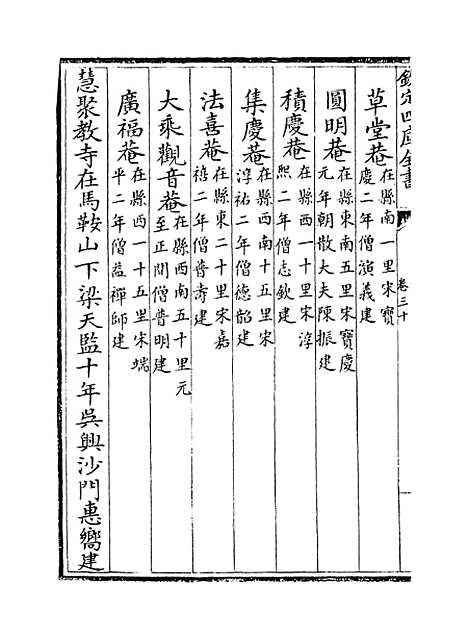 欽定四庫全書
卷三十
草堂菴在縣南一里宋寶慶二年僧演義建
圓明菴在縣東南五里宋寶慶元年朝散大夫陳振建
積慶菴在縣西一十里宋淳熙二年僧志欽建
集慶菴在縣西南十五里宋淳祐二年僧德韶建
法喜菴在縣東二十里宋嘉禧二年僧普壽建
大乘觀音菴在縣西南五十里元至正間僧普明建
廣福菴在縣西一十五里宋端平二年僧藴禪師建
慧聚教寺在馬鞍山下梁天監十年吳興沙門惠嚮建